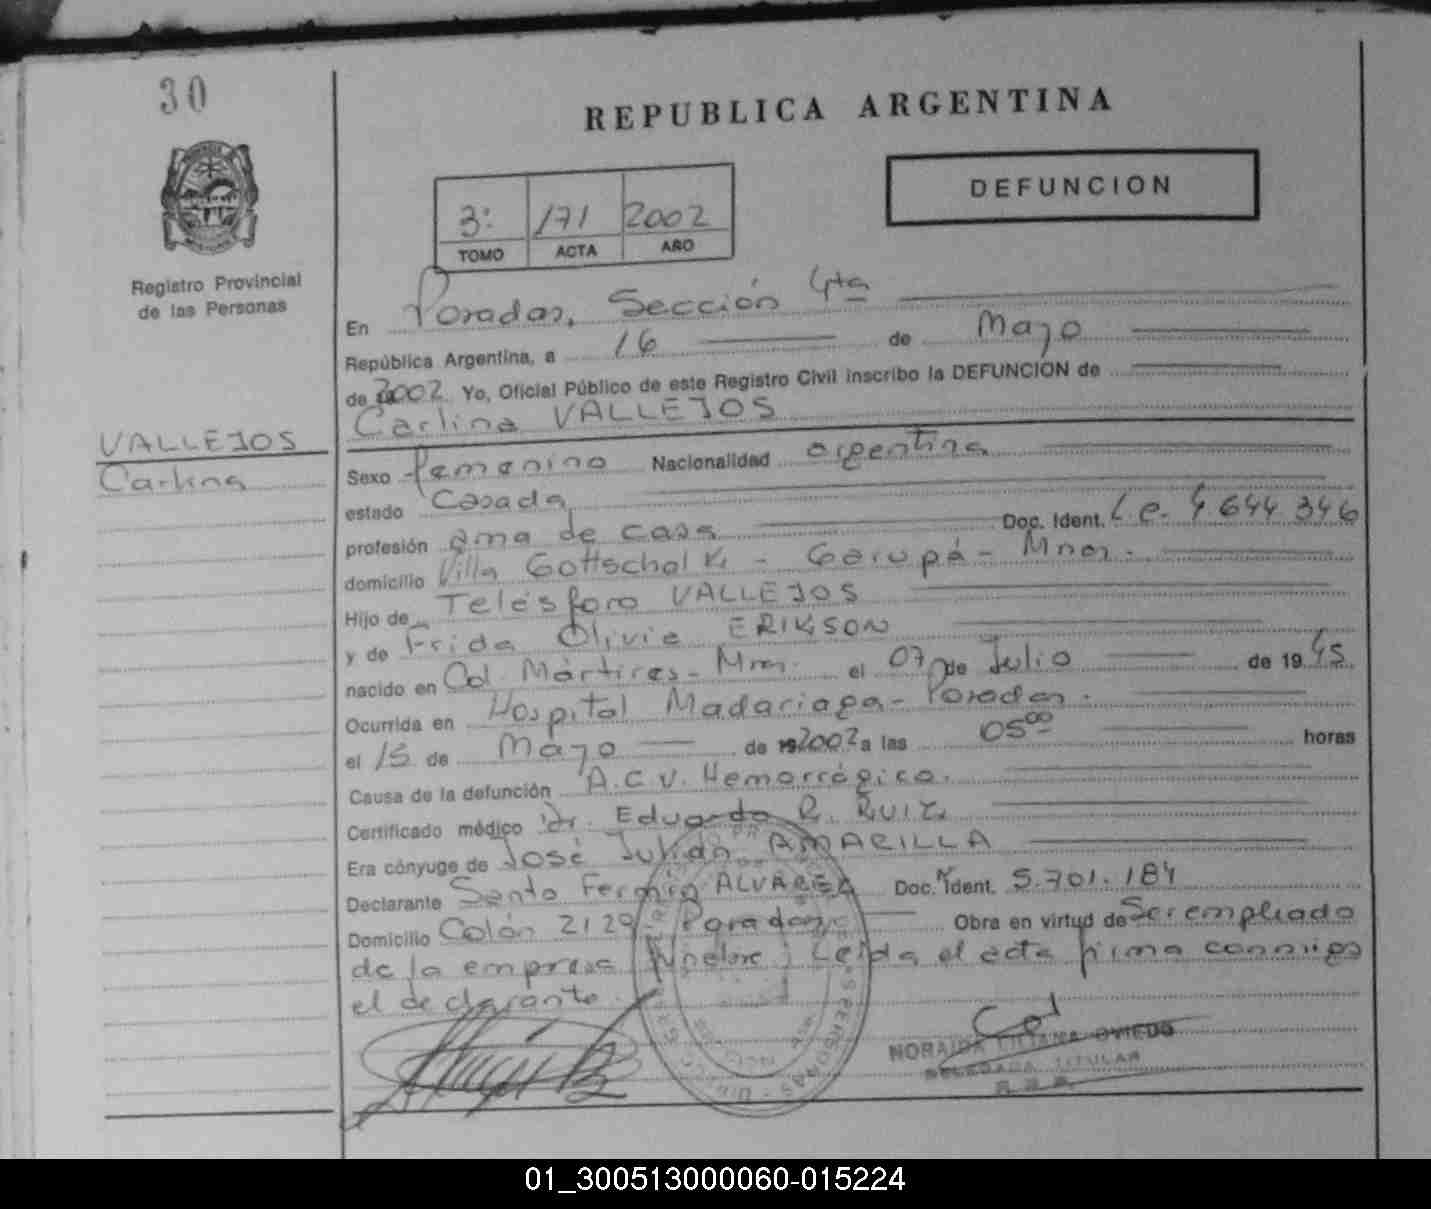 30
REPUBLICA ARGENTINA
DEFUNCION
3: 171 2002
TOMO ACTA AÑO
Registro Provincial
de las Personas
En Posadas, Sección 4ta
República Argentina, a 16 de Mayo
de 2002 Yo, Oficial Público de este Registro Civil inscribo la DEFUNCION de
Carlina VALLEJOS
VALLEJOS
Carlina
Sexo femenino Nacionalidad argentina
estado Casada
profesión ama de casa Doc. Ident. L.C. 4.644.346
domicilio Villa Gottschalk - Garupá - Mnes.
Hijo de Telésforo VALLEJOS
y de Frida Olivia ERIKSON
nacido en Cd. Mártires - Mnes. el 07 de Julio de 1945
Ocurrida en Hospital Madariaga - Posadas.
el 15 de Mayo de 2002 a las 0500 horas
Causa de la defunción A.C.V. Hemorrágico.
Certificado médico Dr. Eduardo R. RUIZ
Era cónyuge de José Julián AMARILLA
Declarante Santo Fermín ALVAREZ Doc. Ident. 5.701.184
Domicilio Colón 2129 - Posadas Obra en virtud de Ser empleado
de la empresa fúnebre; Leída el acta firma conmigo
el declarante.
NORAIDA LILIANA OVIEDO
DELEGADA TITULAR
01_300513000060-015224